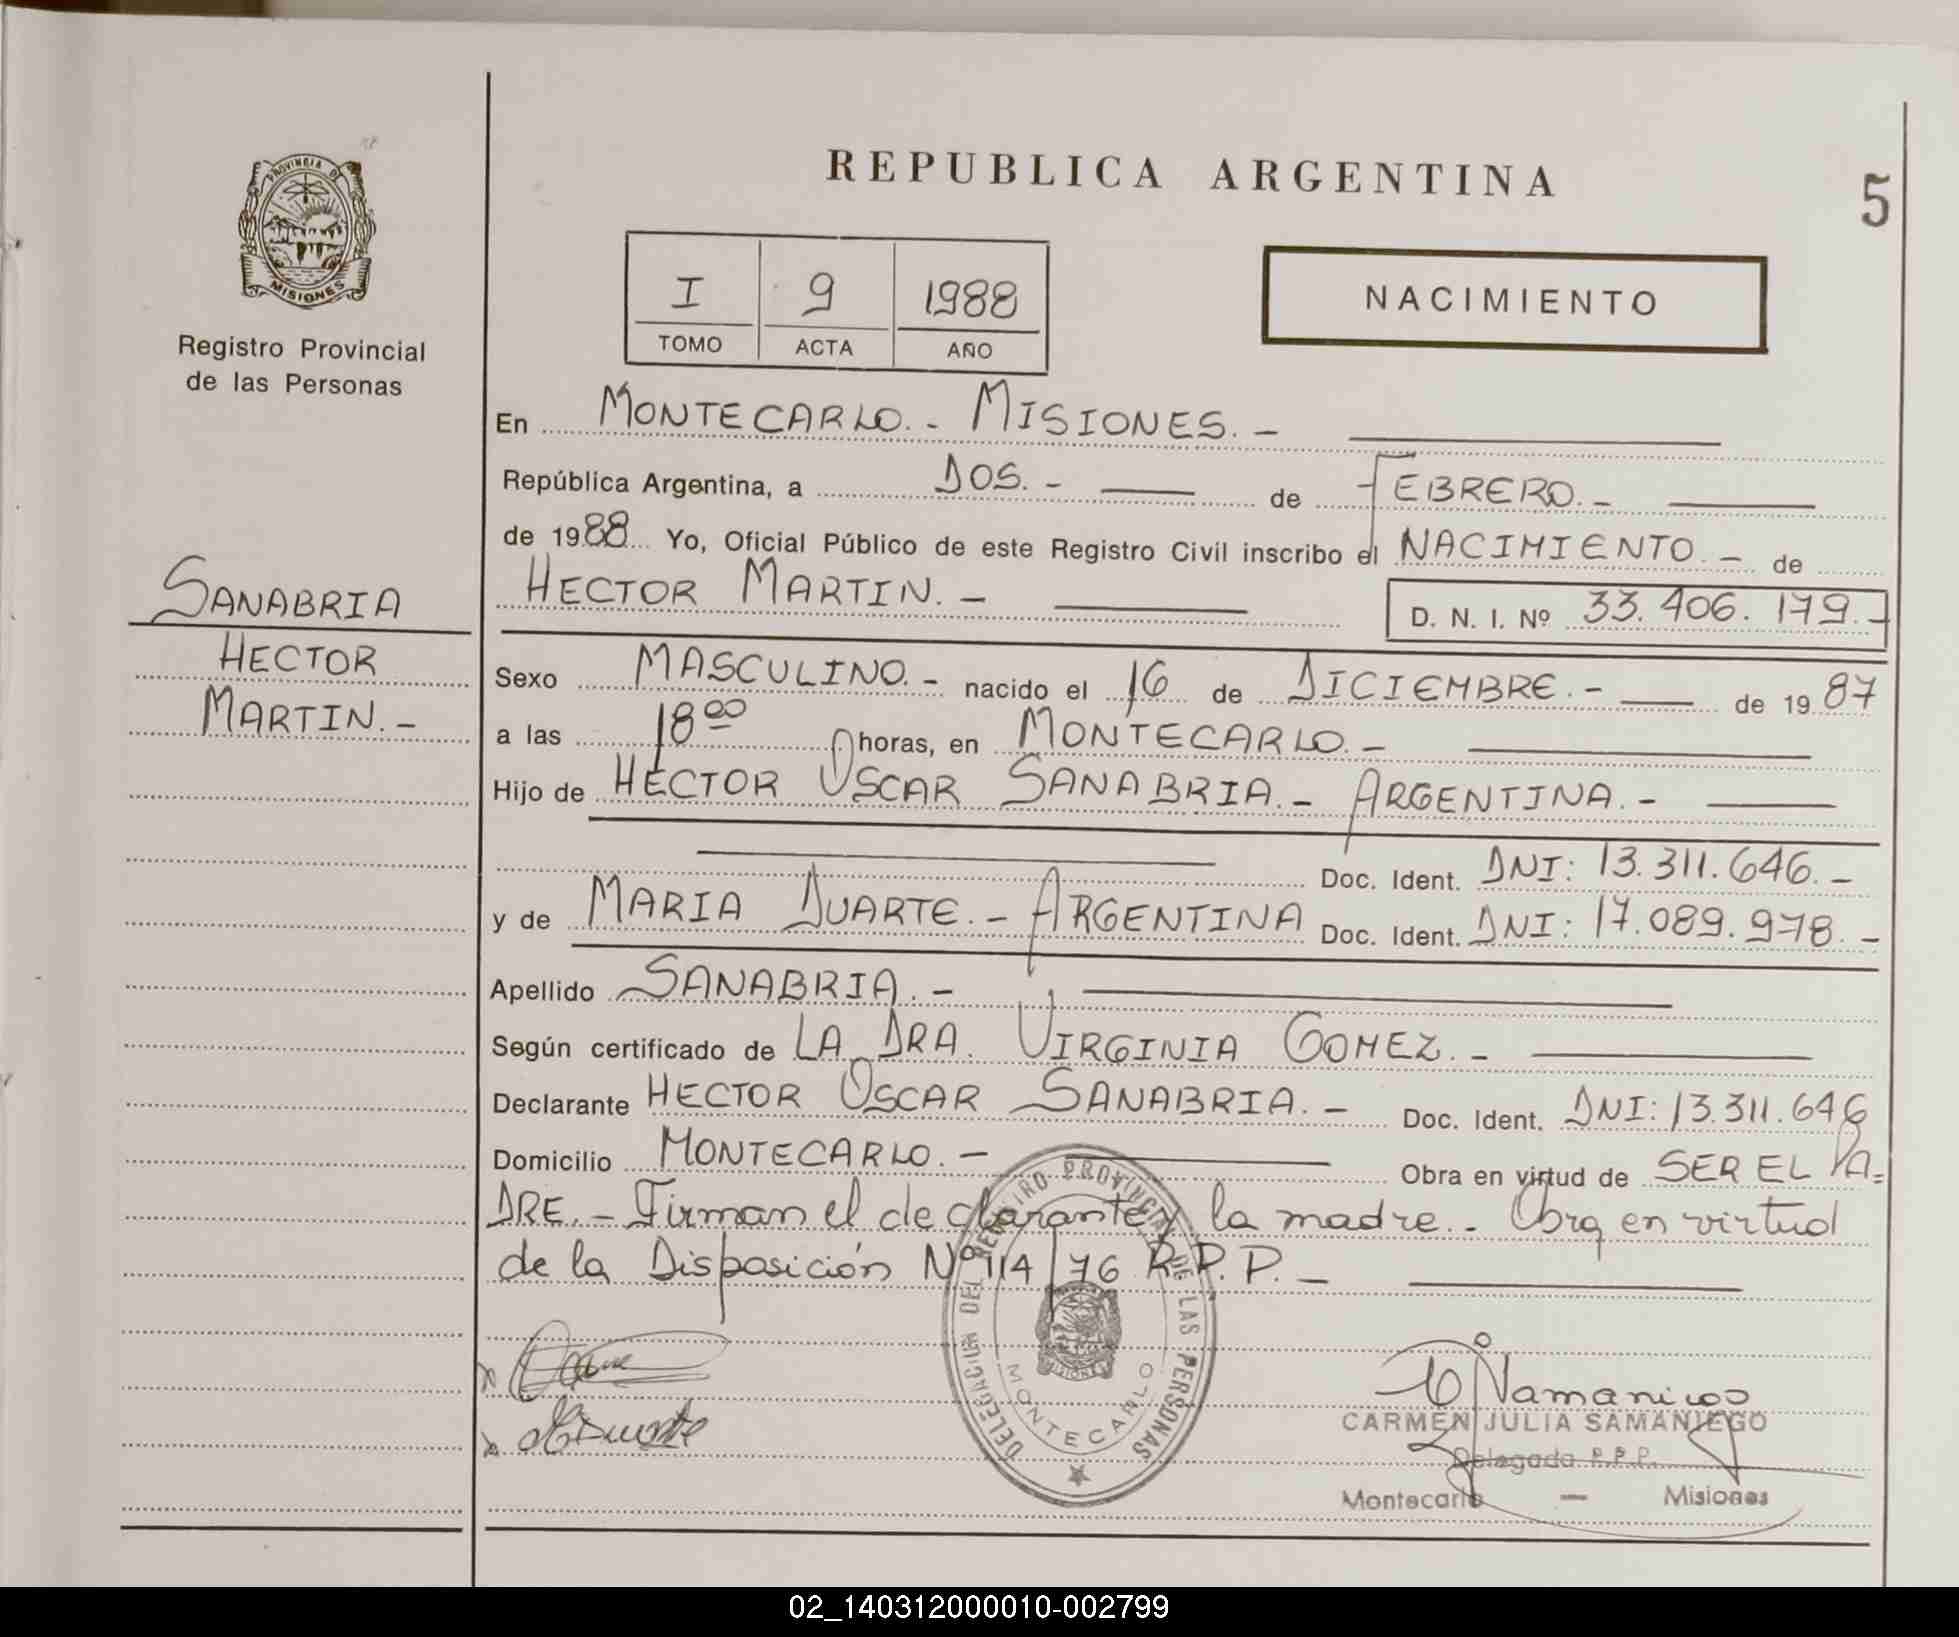 REPUBLICA ARGENTINA
5
PROVINCIA DE
MISIONES
Registro Provincial
de las Personas
I 9 1988
TOMO ACTA AÑO
NACIMIENTO
En MONTECARLO.- MISIONES.-
República Argentina, a DOS.- de FEBRERO.-
de 1988 Yo, Oficial Público de este Registro Civil inscribo el NACIMIENTO.- de
HECTOR MARTIN.- D. N. I. Nº 33.406.179.-
SANABRIA
HECTOR
MARTIN.-
Sexo MASCULINO.- nacido el 16 de DICIEMBRE.- de 1987
a las 18 00 horas, en MONTECARLO.-
Hijo de HECTOR OSCAR SANABRIA.- ARGENTINA.-
Doc. Ident. DNI: 13.311.646.-
y de MARIA DUARTE.- ARGENTINA Doc. Ident. DNI: 17.089.978.-
Apellido SANABRIA.-
Según certificado de LA DRA. VIRGINIA GOMEZ.-
Declarante HECTOR OSCAR SANABRIA.- Doc. Ident. DNI: 13.311.646
Domicilio MONTECARLO.- Obra en virtud de SER EL PA=
DRE.- Firman el declarante y la madre.- Obra en virtud
de la Disposición Nº 114/76 R.P.P.-
DELEGACION DEL REGISTRO PROVINCIAL DE LAS PERSONAS
MISIONES
MONTECARLO
CARMEN JULIA SAMANIEGO
Delegada R.P.P.
Montecarlo — Misiones
02_140312000010-002799